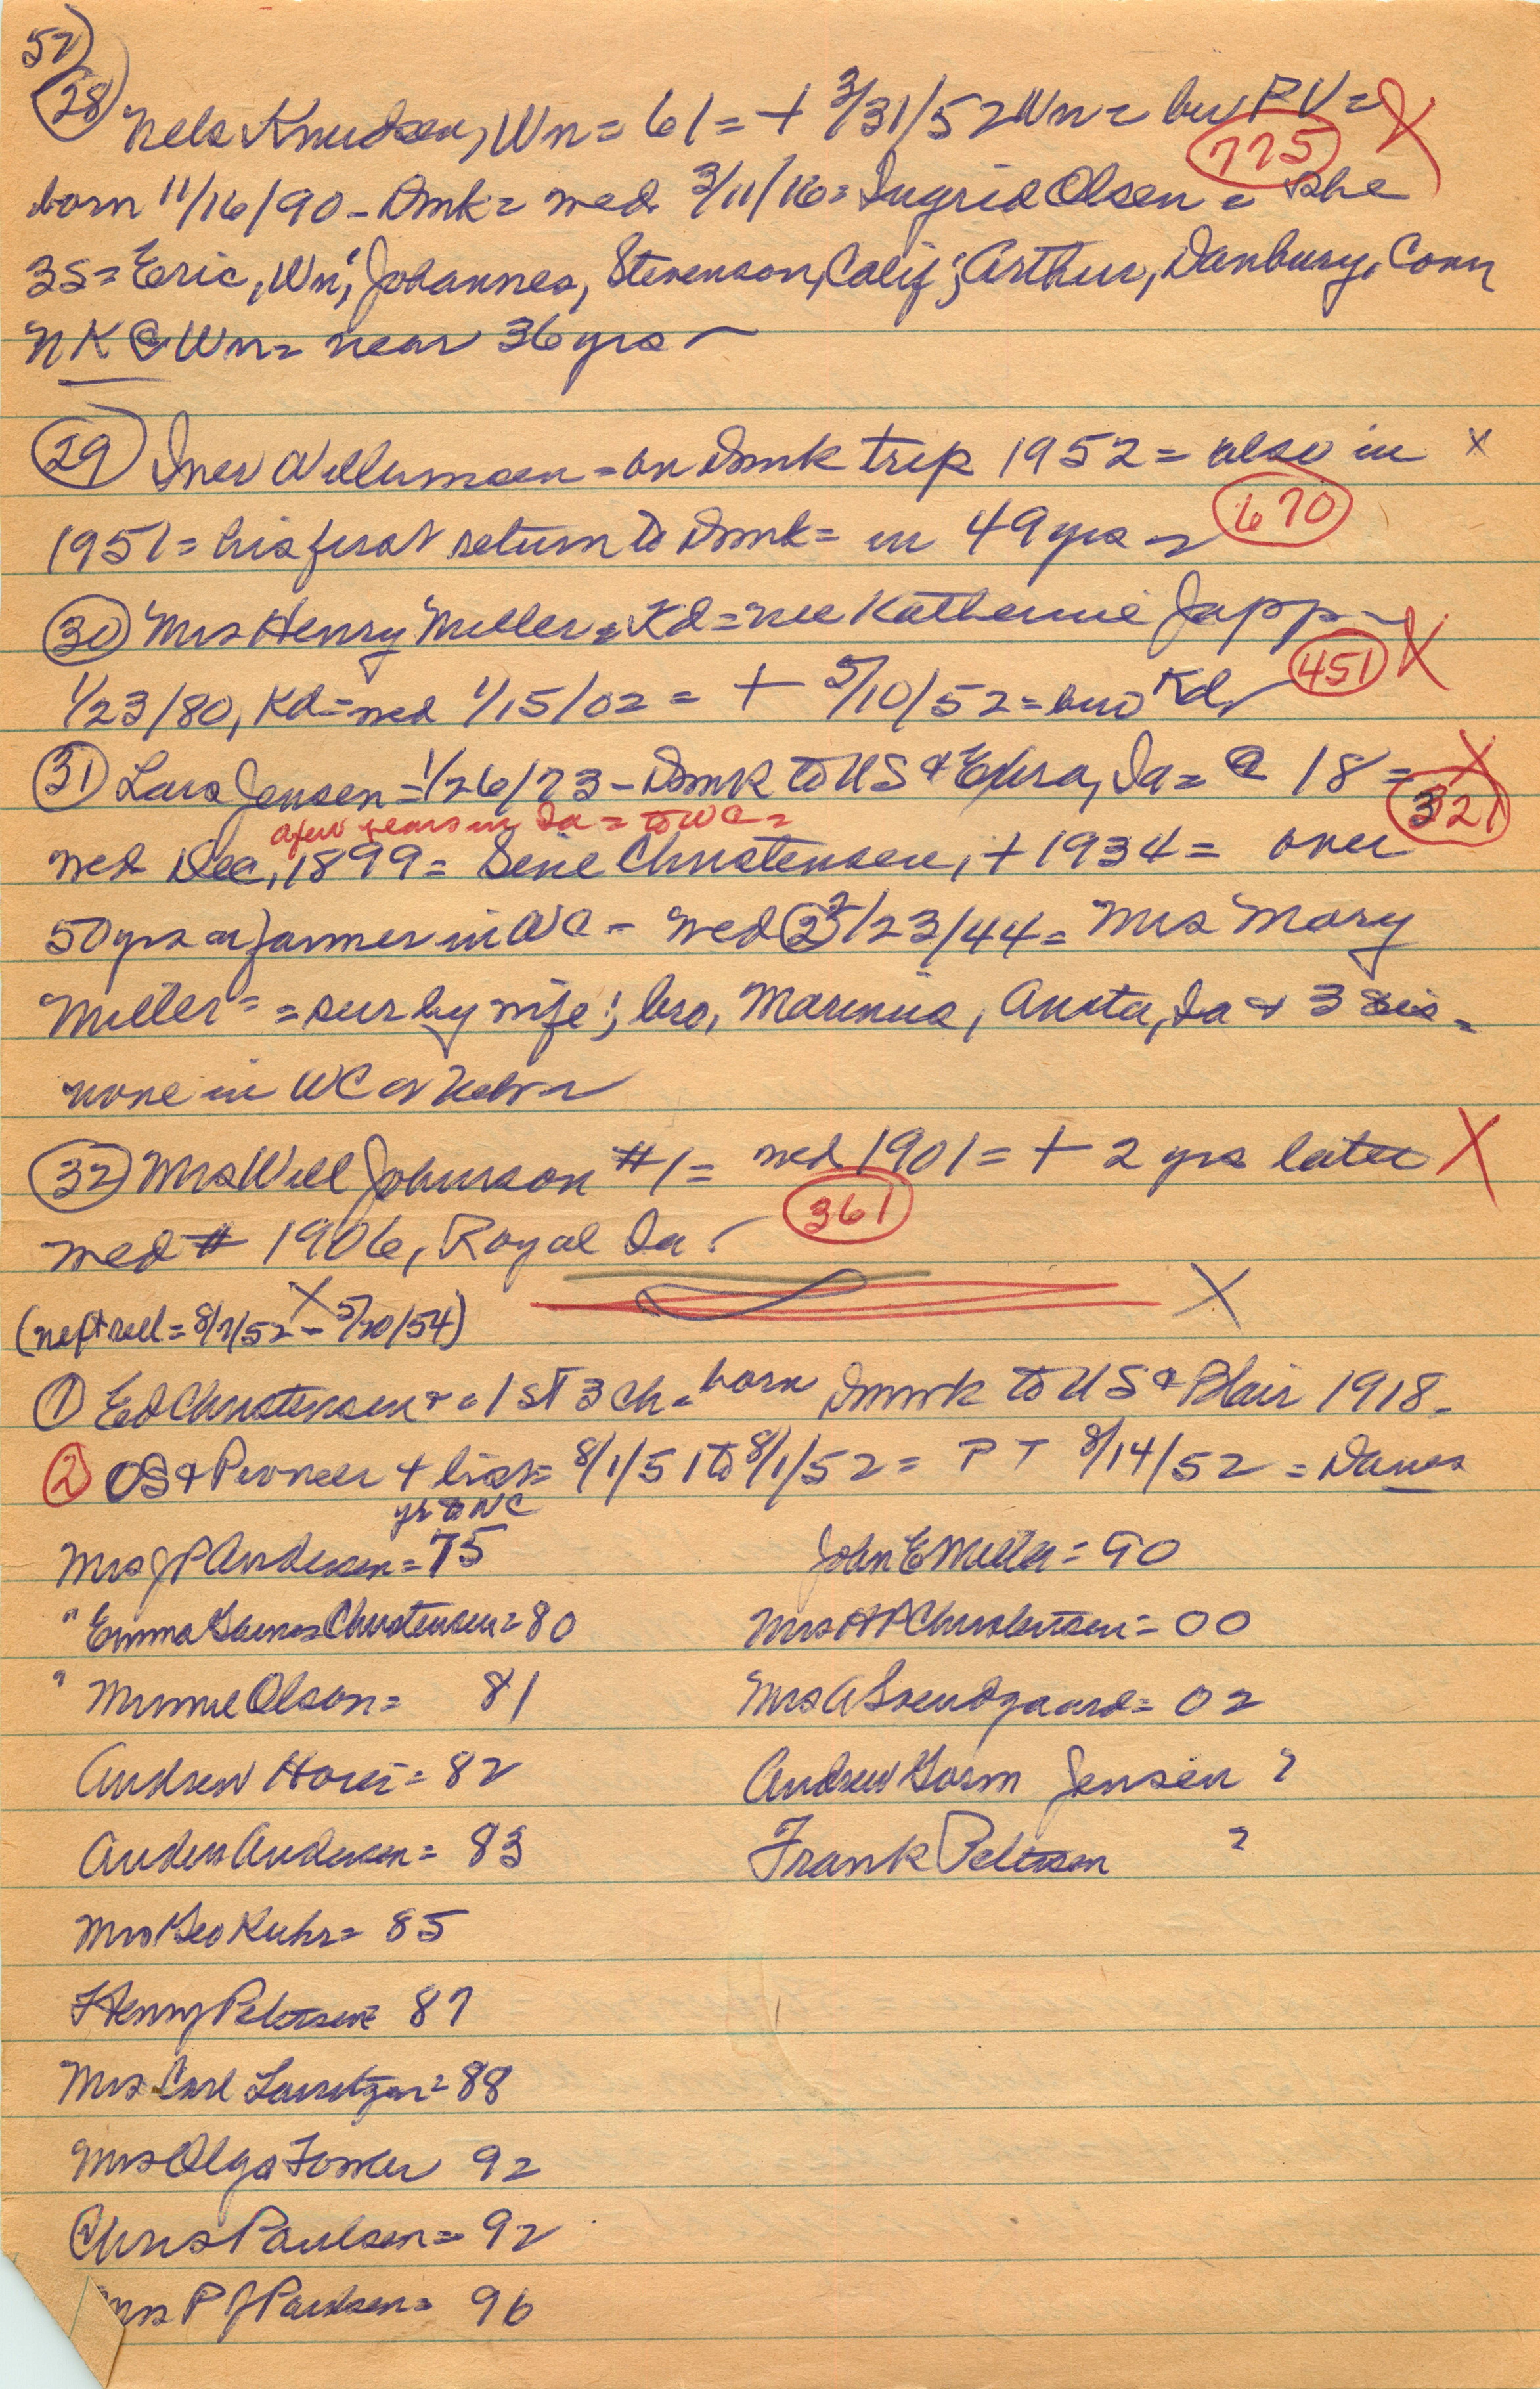 52)
(28) Nels Knudsen, Wn = 61 = + 3/31/52 Wn = bur PV = X
775
born 11/16/90 - Dmk = med 3/11/16 = Ingrid Olsen = she
3S = Eric, Wn; Johannes, Stevenson, Calif; Arthur, Danbury, Conn
NK @ Wn = near 36 yrs
(29) Iner Willumsen = on Dmk trip 1952 = also in X
1951 = his first return to Dmk = in 49 yrs 670
(30) Mrs Henry Miller = Kd = nee Katherine Japp X
1/23/80, Kd = med 1/15/02 = + 5/10/52 = bur Kd 451
(31) Lars Jensen = 1/26/73 - Dmk to US & Elkra, Ia = @ 18 = X
321
a few years in Ia = to WC =
med Dec, 1899 = Sene Christensen, + 1934 = over
50 yrs a farmer in WC - med (2) 2/23/44 = Mrs Mary
Miller = = sur by wife; bro, Marinus, Anita, Ia & 3 sis =
none in WC or Nebr
(32) Mrs Will Johnson #1 = med 1901 = + 2 yrs later X
361
med # 1906, Royal Ia.
X
(next roll = 8/7/52 - 5/20/54) X
(1) Ed Christensen + = 1st 3 ch = born Dmk to US & Blair 1918.
(2) OS & Pioneer + list = 8/1/51 to 8/1/52 = PT 8/14/52 = Danes
yr to WC
Mrs J P Andersen = 75 John E Miller = 90
" Emma Games Christensen = 80 Mrs H P Christensen = 00
" Minnie Olson = 81 Mrs A Svendgaard = 02
Andrew Hovei = 82 Andrew Gorm Jensen ?
Anders Andersen = 83 Frank Petersen ?
Mrs Geo Kuhr = 85
Henry Petersen = 87
Mrs Carl Lauritzen = 88
Mrs Olga 92
Chris Paulsen = 92
Mrs P J Paulsen = 96